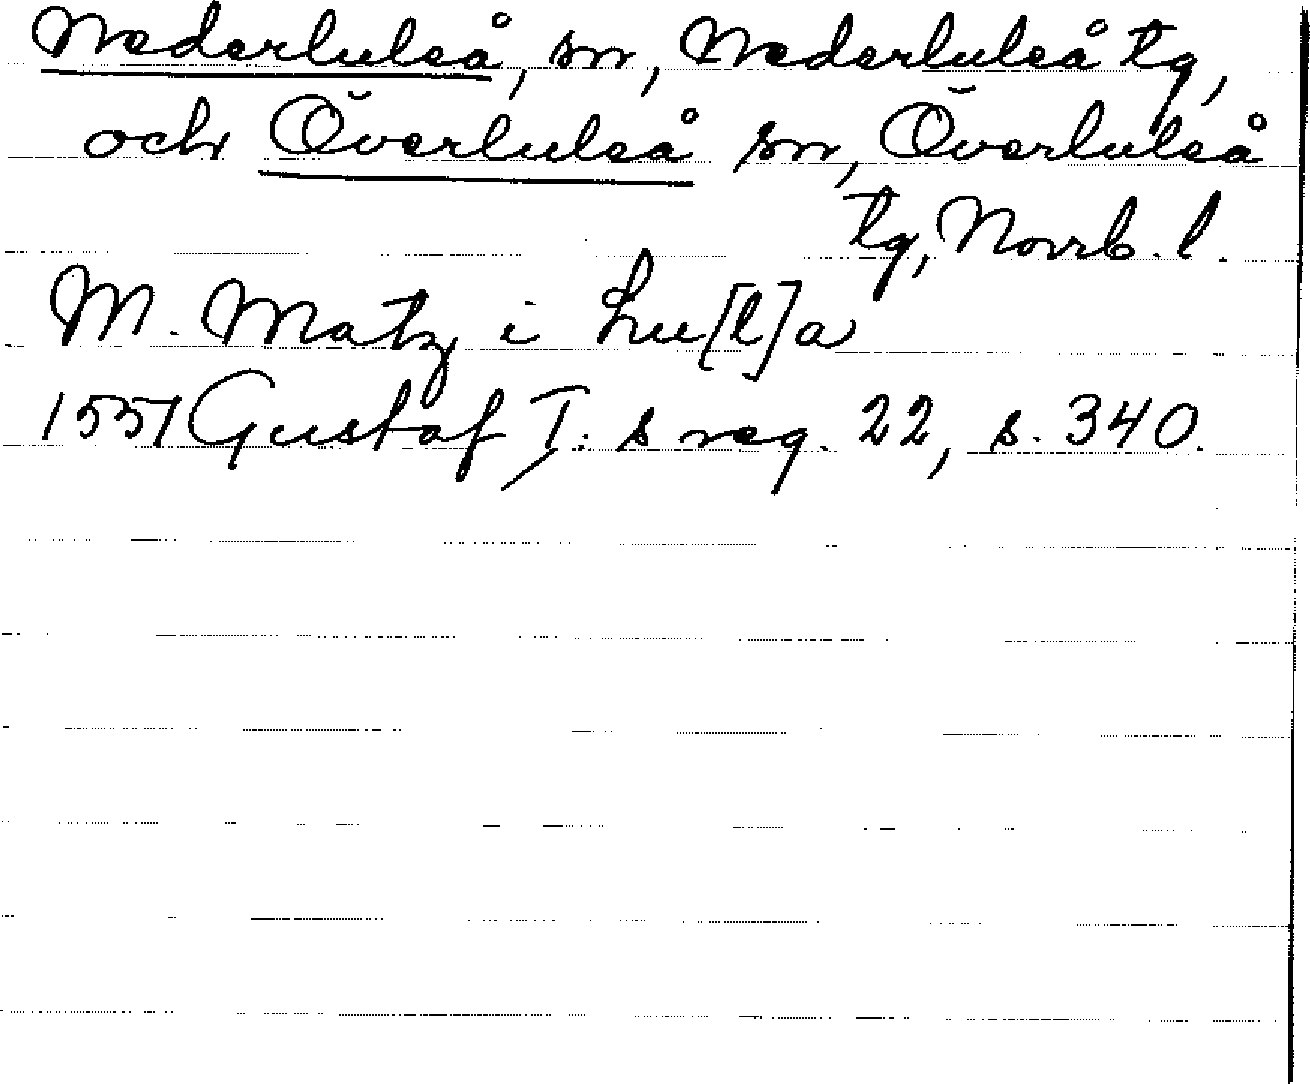 Nederluleå, sn, Nederluleå tg,
och Överluleå sn, Överluleå
tg, Norrb. l.
M. Matz i Lu[l]a
1551 Gustaf I:s reg. 22, s. 340.